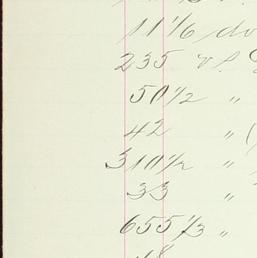 11 1/6 do
235
50 1/2 "
42 "
310 1/2 "
33 "
655 1/3 "